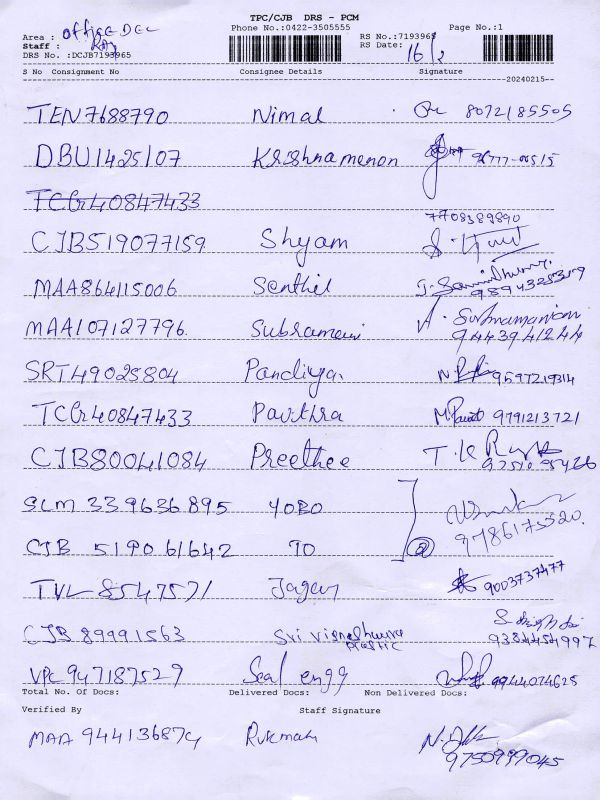 TPC/CJB DRS - PCM
Office DEL
Phone No.:0422-3505555 Page No.:1
Area : RS No.:7193965
Staff : Raj RS Date: 16/2
DRS No. :DCJB7193965
S No Consignment No Consignee Details Signature
20240215
TEN7688790 Nimal 8072185505
DBU1425107 Krishnamenon
TCR40847433
7708389890
CJB519077159 Shyam
MAA864115006 Senthil 9894325319
MAA107127796 Subramani A. Subramaniam 9443941244
SRT49025804 Pandiyan 9597219314
TCR40847433 Pavithra 9791213721
CJB80041084 Preethee T.K
SLM 339636895 YOBO
CJB 519061642 TO 2 9786175520
TVL 8547571 Jagan 9003737477
CJB 89991563 Sri Vignesh plastic 9384454997
VPC 947187529 Seal engg 9944074625
Total No. Of Docs: Delivered Docs: Non Delivered Docs:
Verified By Staff Signature
MAA 944136879 Rukmani
9750999045